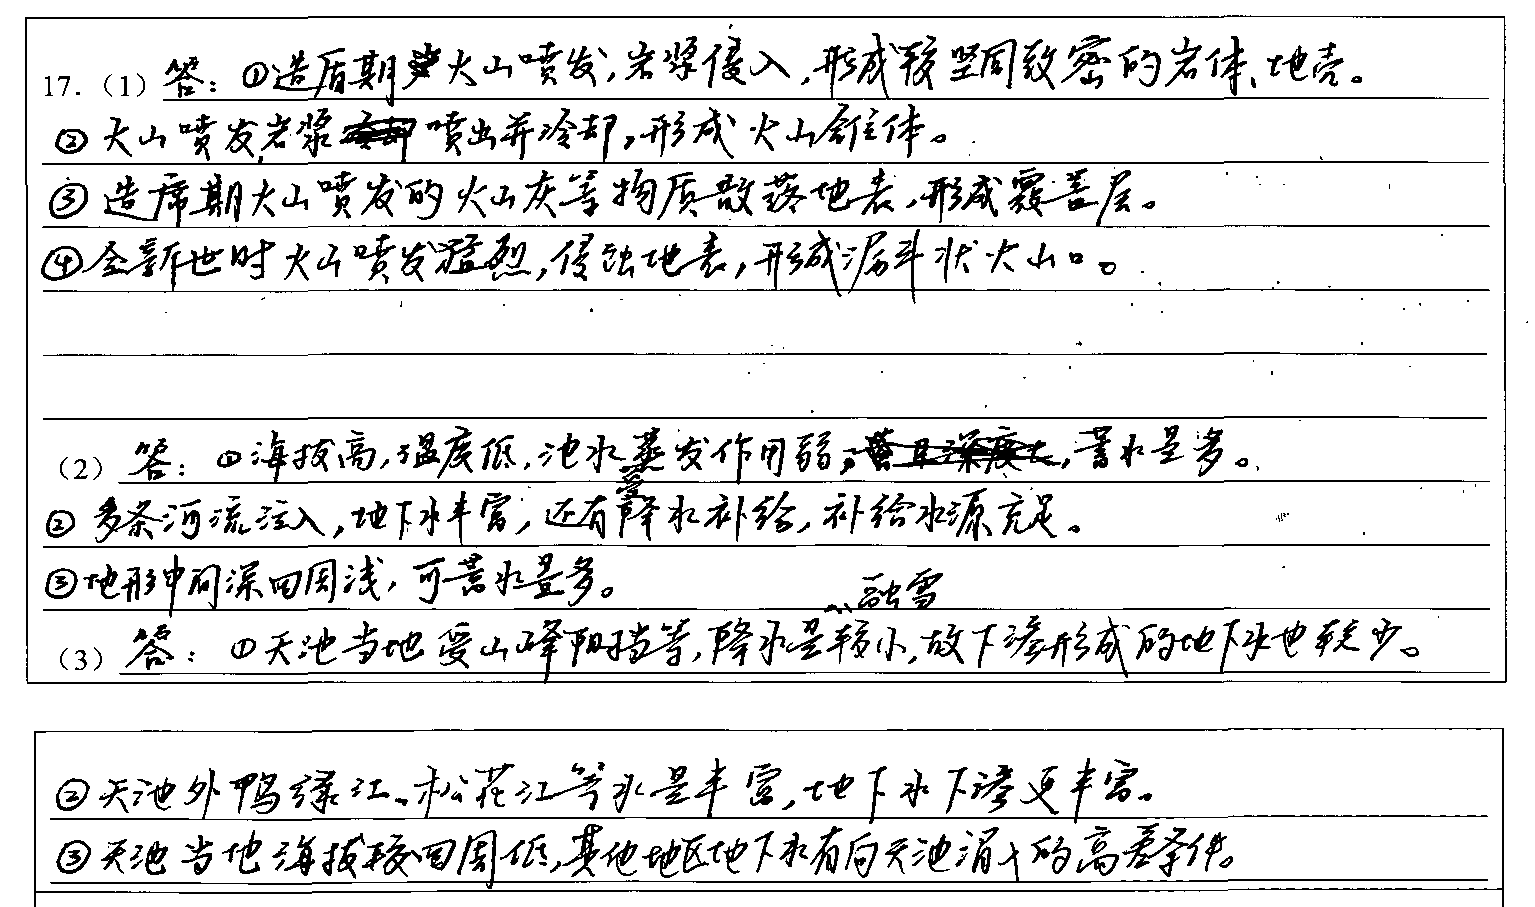 17.（1）答：①造盾期火山喷发,岩浆侵入,形成较坚固致密的岩体、地壳。
②火山喷发,岩浆喷出并冷却,形成火山锥主体。
③造席期火山喷发的火山灰等物质散落地表,形成覆盖层。
④全新世时火山喷发猛烈,侵蚀地表,形成漏斗状火山口。
（2）答：①海拔高,温度低,池水蒸发作用弱,蓄水量多。
②多条河流注入,地下水丰富,还有受降水补给,补给水源充足。
③地形中间深四周浅,可蓄水量多。
（3）答：①天池当地受山峰阻挡等,降水、融雪量较小,故下渗形成的地下水也较少。
②天池外鸭绿江、松花江等水量丰富,地下水下渗更丰富。
③天池当地海拔较四周低,其他地区地下水有向天池涓入的高差条件。